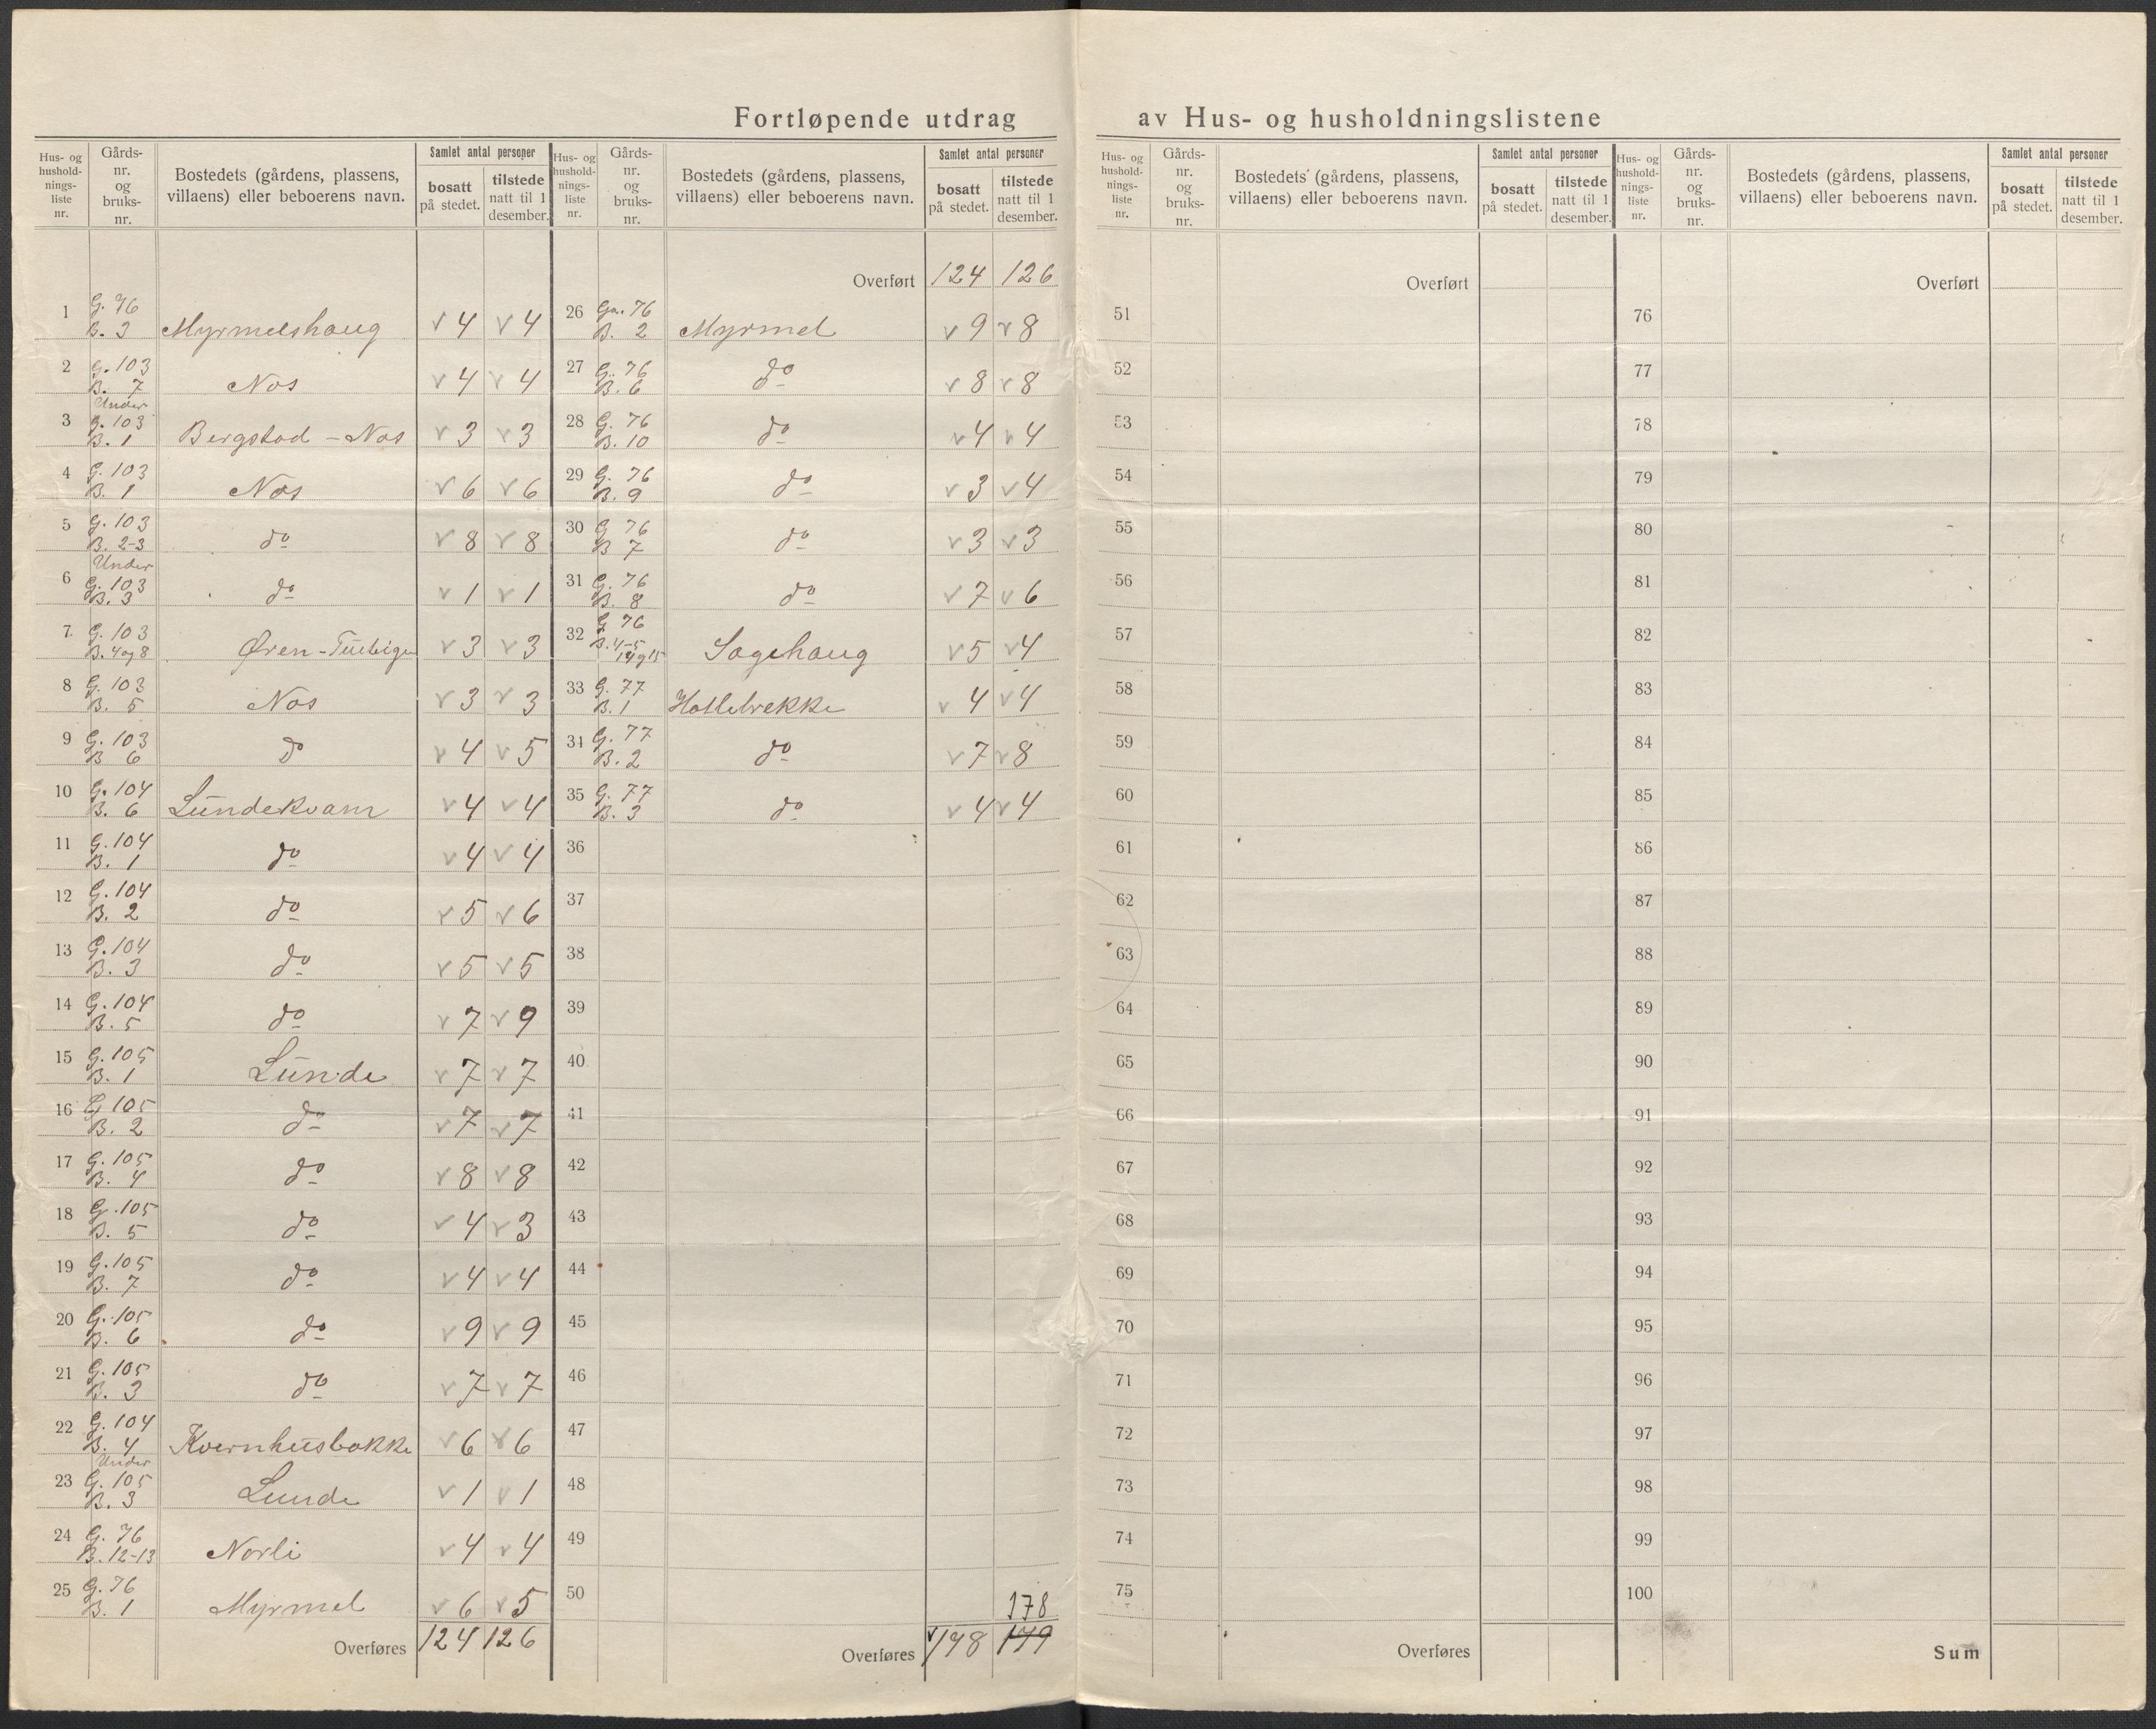 Fortløpende utdrag av Hus- og husholdningslistene
Hus- og husholdningsliste nr. Gårdsnr. og bruksnr. Bostedets (gårdens, plassens, villaens) eller beboerens navn. Samlet antal personer bosatt på stedet. tilstede natt til 1 desember.
Hus- og husholdningsliste nr. Gårdsnr. og bruksnr. Bostedets (gårdens, plassens, villaens) eller beboerens navn. Samlet antal personer bosatt på stedet. tilstede natt til 1 desember.
Hus- og husholdningsliste nr. Gårdsnr. og bruksnr. Bostedets (gårdens, plassens, villaens) eller beboerens navn. Samlet antal personer bosatt på stedet. tilstede natt til 1 desember.
Hus- og husholdningsliste nr. Gårdsnr. og bruksnr. Bostedets (gårdens, plassens, villaens) eller beboerens navn. Samlet antal personer bosatt på stedet. tilstede natt til 1 desember.
1 G. 76 B. 3 Myrmelshaug v 4 v 4
2 G. 103 B. 7 Nos v 4 v 4
3 Under G. 103 B. 1 Bergstad - Nos v 3 v 3
4 G. 103 B. 1 Nos v 6 v 6
5 G. 103 B. 2-3 do v 8 v 8
6 Under G. 103 B. 3 do v 1 v 1
7 G. 103 B. 4 og 8 Øren - v 3 v 3
8 G. 103 B. 5 Nos v 3 v 3
9 G. 103 B 6 do v 4 v 5
10 G. 104 B. 6 Lundekvam v 4 v 4
11 G. 104 B. 1 do v 4 v 4
12 G. 104 B. 2 do v 5 v 6
13 G. 104 B. 3 do v 5 v 5
14 G. 104 B. 5 do v 7 v 9
15 G. 105 B. 1 Lunde v 7 v 7
16 G 105 B. 2 do v 7 v 7
17 G. 105 B. 4 do v 8 v 8
18 G. 105 B. 5 do v 4 v 3
19 G. 105 B. 7 do v 4 v 4
20 G. 105 B. 6 do v 9 v 9
21 G. 105 B. 3 do v 7 v 7
22 G. 104 B. 4 Kvernhusbakke v 6 v 6
23 Under G. 105 B. 3 Lunde v 1 v 1
24 G. 76 B. 12-13 Norli v 4 v 4
25 G. 76 B. 1 Myrmel v 6 v 5
Overføres 124 126
Overført 124 126
26 Ga. 76 B. 2 Myrmel v 9 v 8
27 G. 76 B. 6 do v 8 v 8
28 G. 76 B. 10 do v 4 v 4
29 G. 76 B. 9 do v 3 v 4
30 G 76 B 7 do v 3 v 3
31 G. 76 B. 8 do v 7 v 6
32 G 76 B. 4-5 14 og 15 Sagehaug v 5 v 4
33 G. 77 B. 1 Hollebrekke v 4 v 4
34 G. 77 B. 2 do v 7 v 8
35 G. 77 B. 3 do v 4 v 4
36
37
38
39
40
41
42
43
44
45
46
47
48
49
50
178
Overføres v 178 179
Overført
51
52
53
54
55
56
57
58
59
60
61
62
63
64
65
66
67
68
69
70
71
72
73
74
75
Overføres
Overført
76
77
78
79
80
81
82
83
84
85
86
87
88
89
90
91
92
93
94
95
96
97
98
99
100
Sum